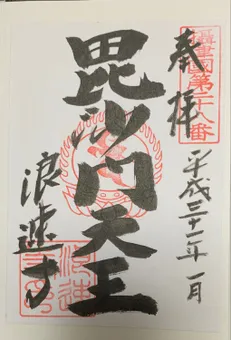 奉拝
摂津国第二十八番
平成三十一年一月
毘沙門天王
浪速寺